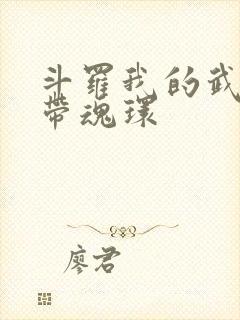 斗羅我的武
帶魂環
廖君